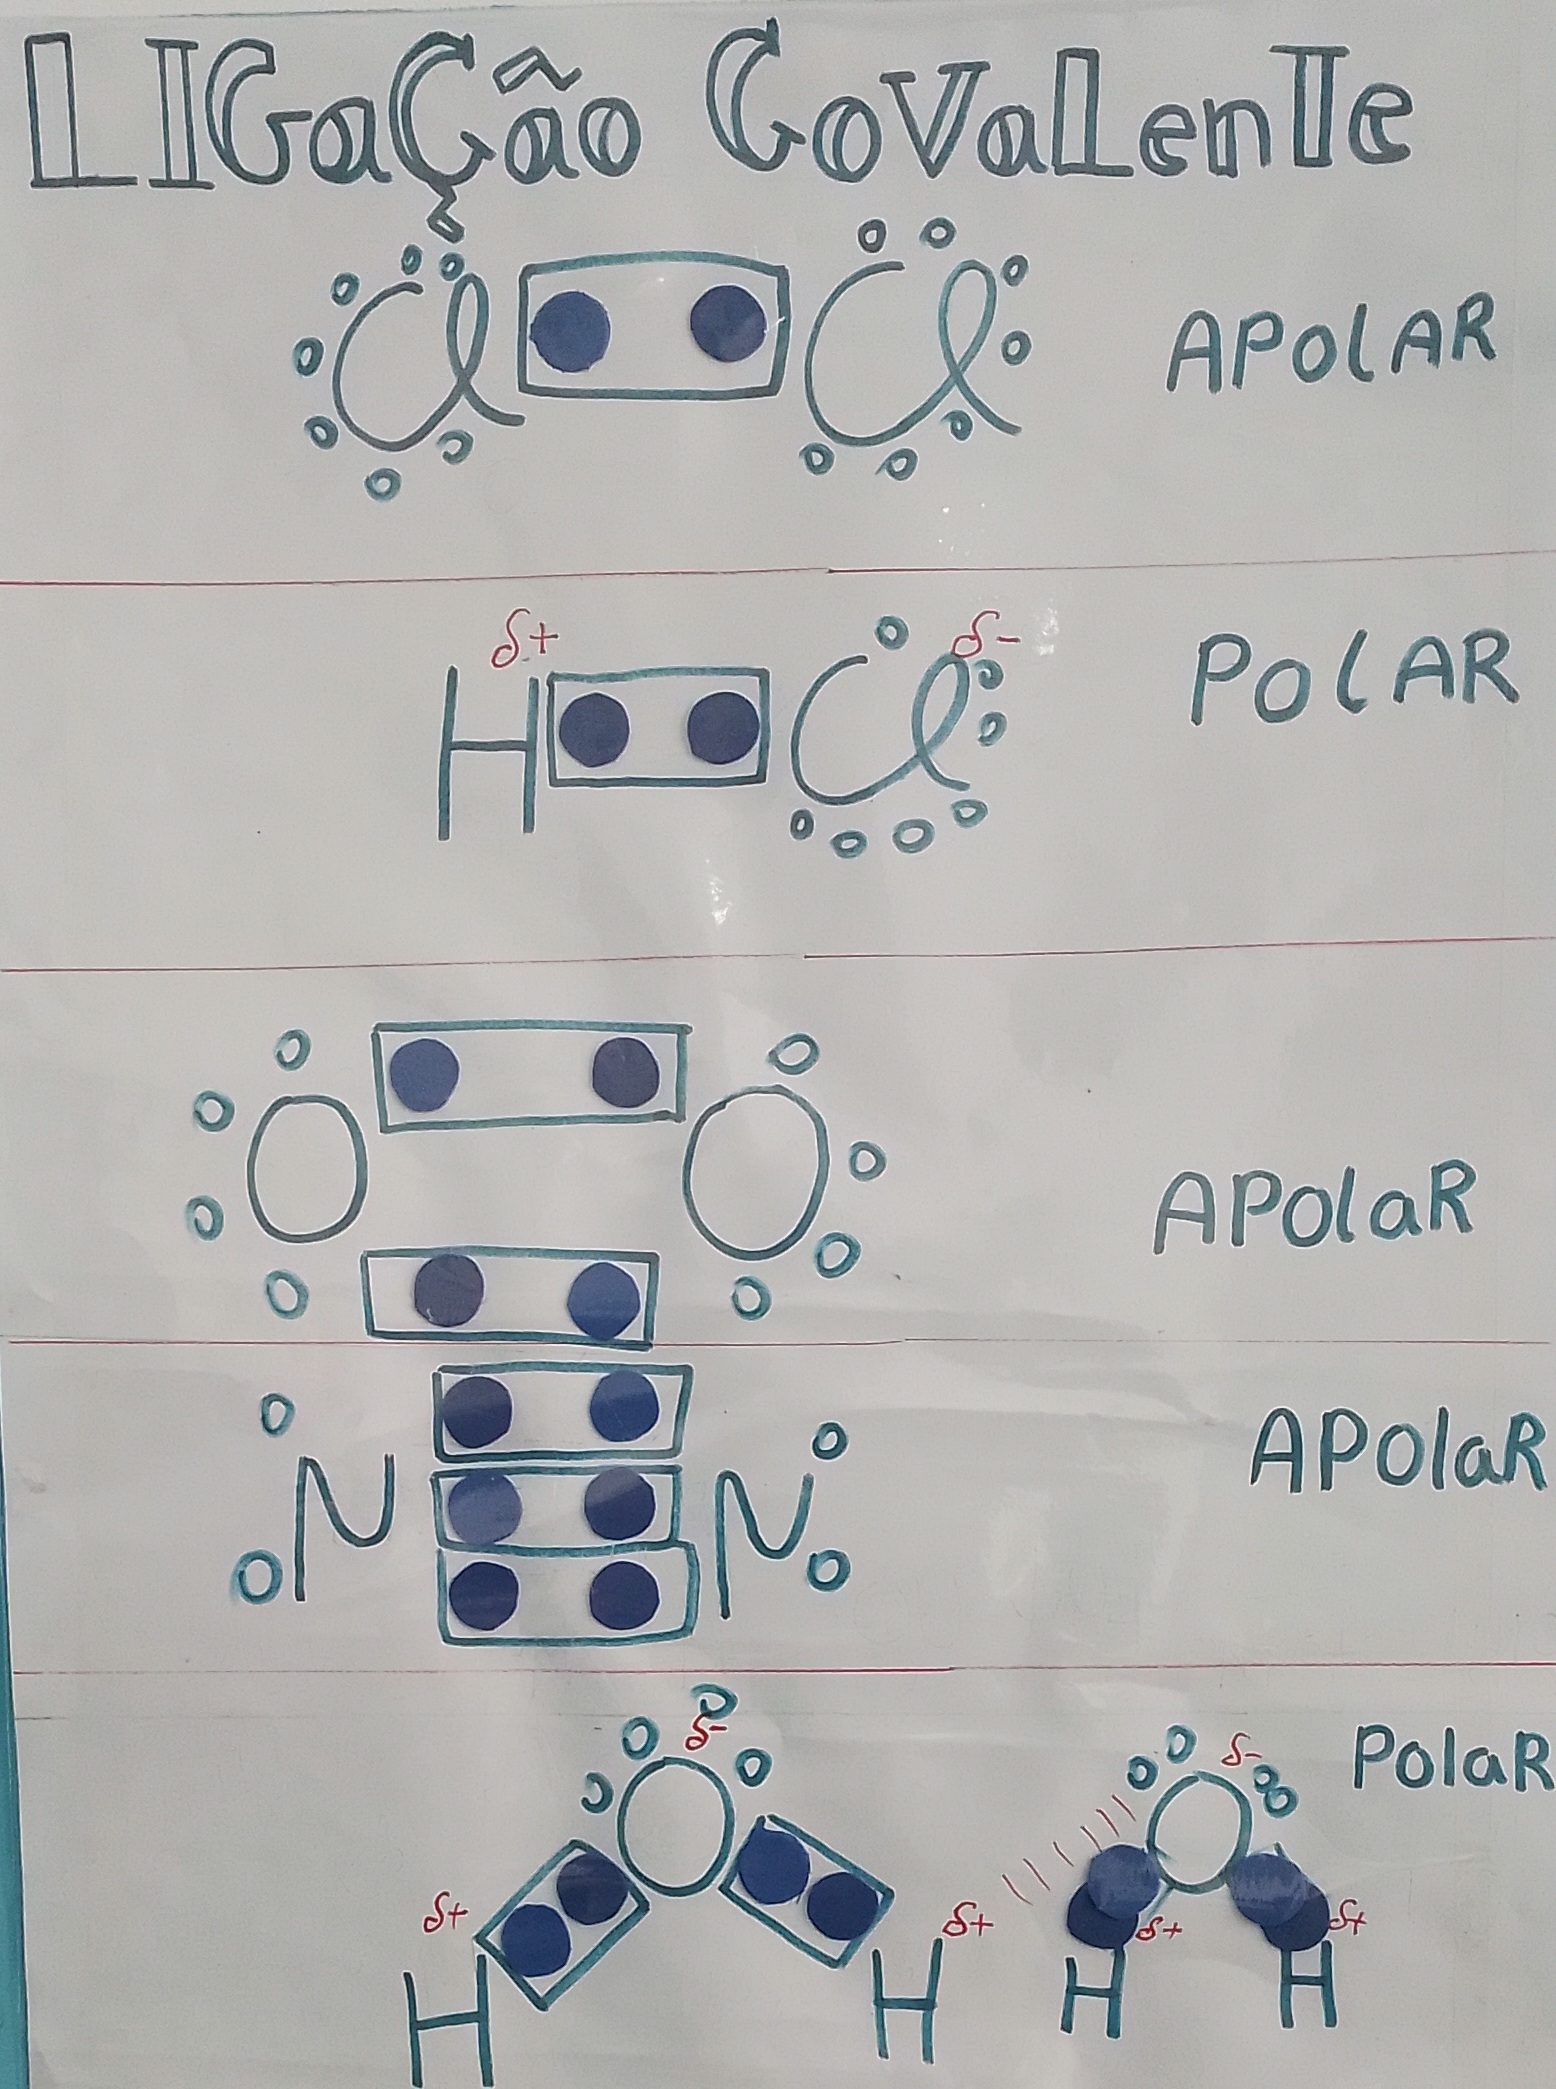 LIGaÇão CoValenTe
Cl Cl APolAR
δ+ δ-
H Cl PolAR
O O APolaR
N N APolaR
δ- δ- PolaR
O O
δ+ δ+ δ+ δ+
H H H H